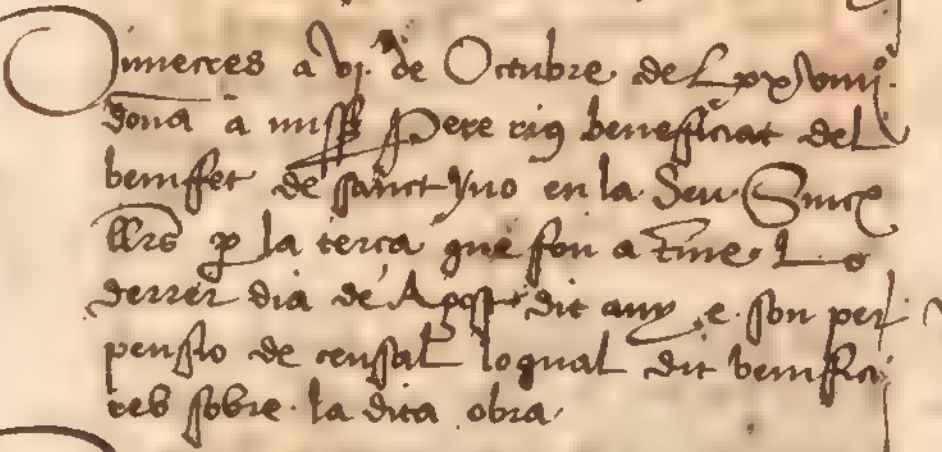 Dimecres a vj. de Octubre de Lxxviiijº
dona a miss Pere rig benefficiat del
beniffet de sanct yvo en la Seu Sinc
llrs p la terca que fon a Lo
derrer dia de Agost dit any e son per
penssio de censsal loqual dit beniffici
reb sobre la dita obra